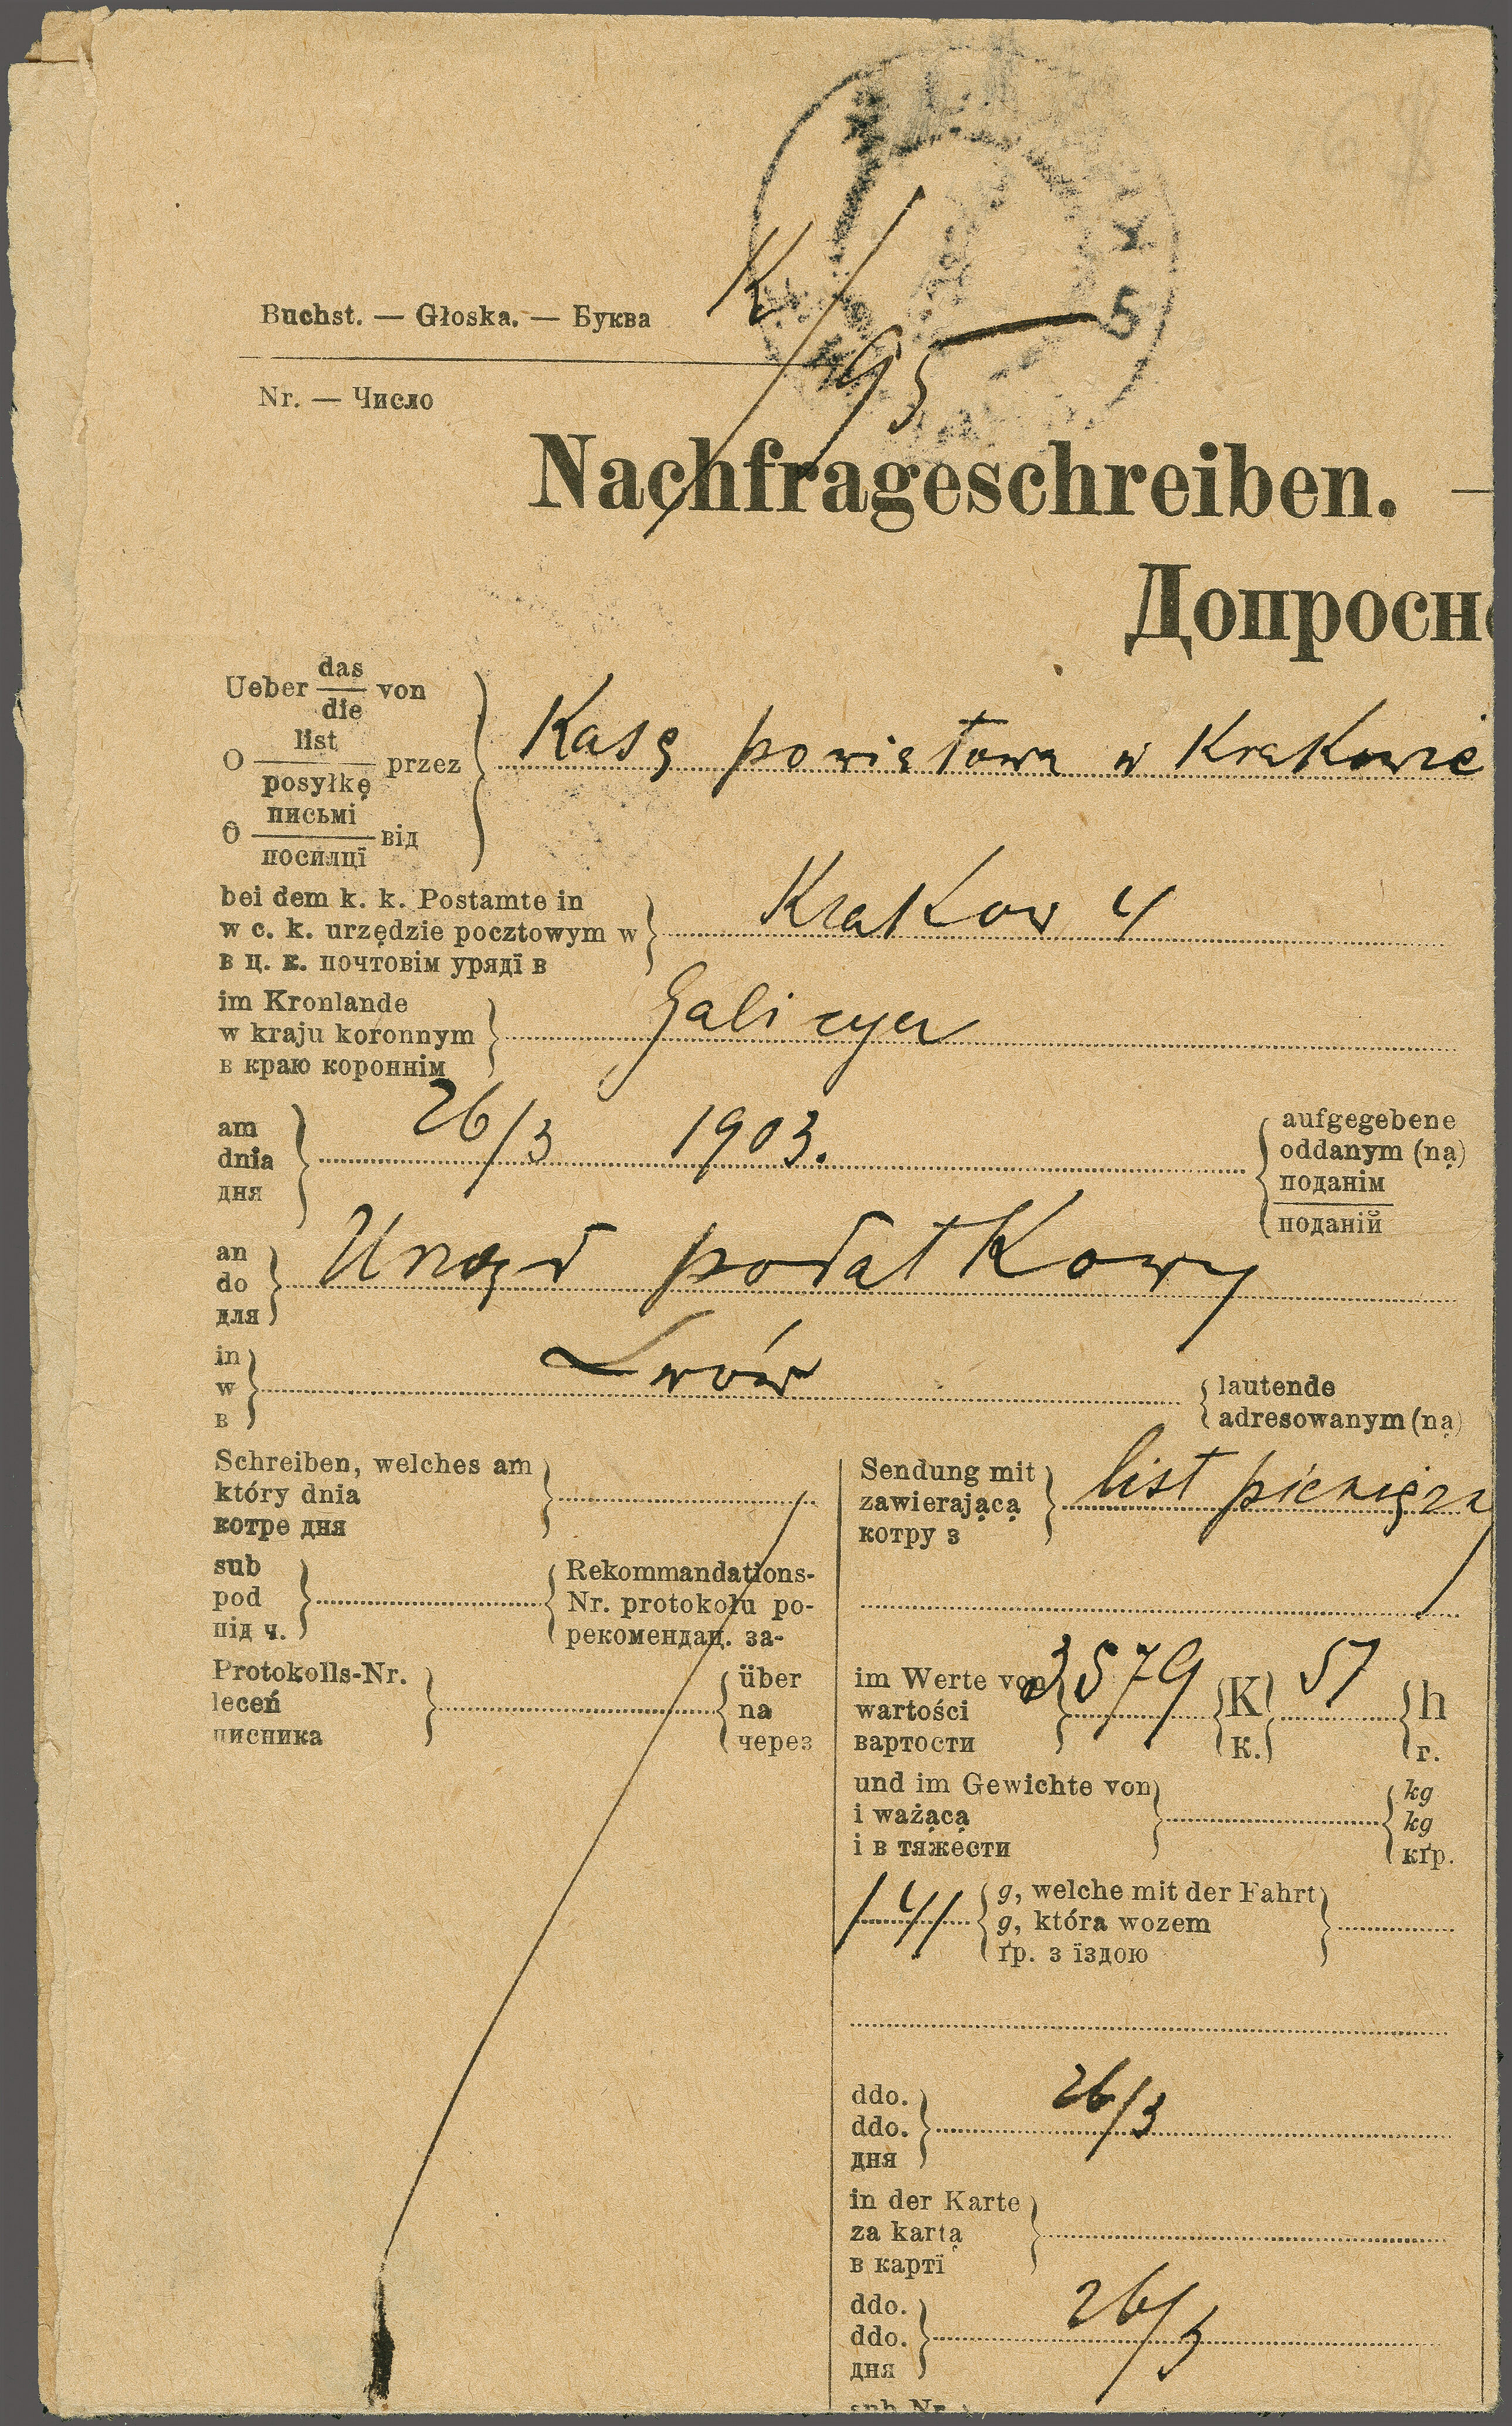 Buchst. — Głoska. — Буква K
95
5
Nr. — Число
Nachfrageschreiben. —
Допросн
Ueber das/die von
O list/posyłkę przez
О письмі/посилцї від
Kasę powiatową w Krakowie
bei dem k. k. Postamte in
w c. k. urzędzie pocztowym w
в ц. к. почтовім урядї в
Krakow 4
im Kronlande
w kraju koronnym
в краю короннім
Galicya
am
dnia
дня
26/3 1903.
aufgegebene
oddanym (ną)
поданім
поданій
an
do
для
Urząd podatkowy
in
w
в
Lwów
lautende
adresowanym (ną)
Schreiben, welches am
który dnia
котре дня
sub
pod
під ч.
Rekommandations-
Nr. protokołu po-
рекомендац. за-
Protokolls-Nr.
leceń
писника
über
na
через
Sendung mit
zawierającą
котру з
list
im Werte von
wartości
вартости
3579 K 51 h
к. г.
und im Gewichte von
i ważącą
і в тяжести
kg
kg
кґр.
141
g, welche mit der Fahrt
g, która wozem
ґр. з їздою
ddo.
ddo.
дня
26/3
in der Karte
za kartą
в картї
ddo.
ddo.
дня
26/3